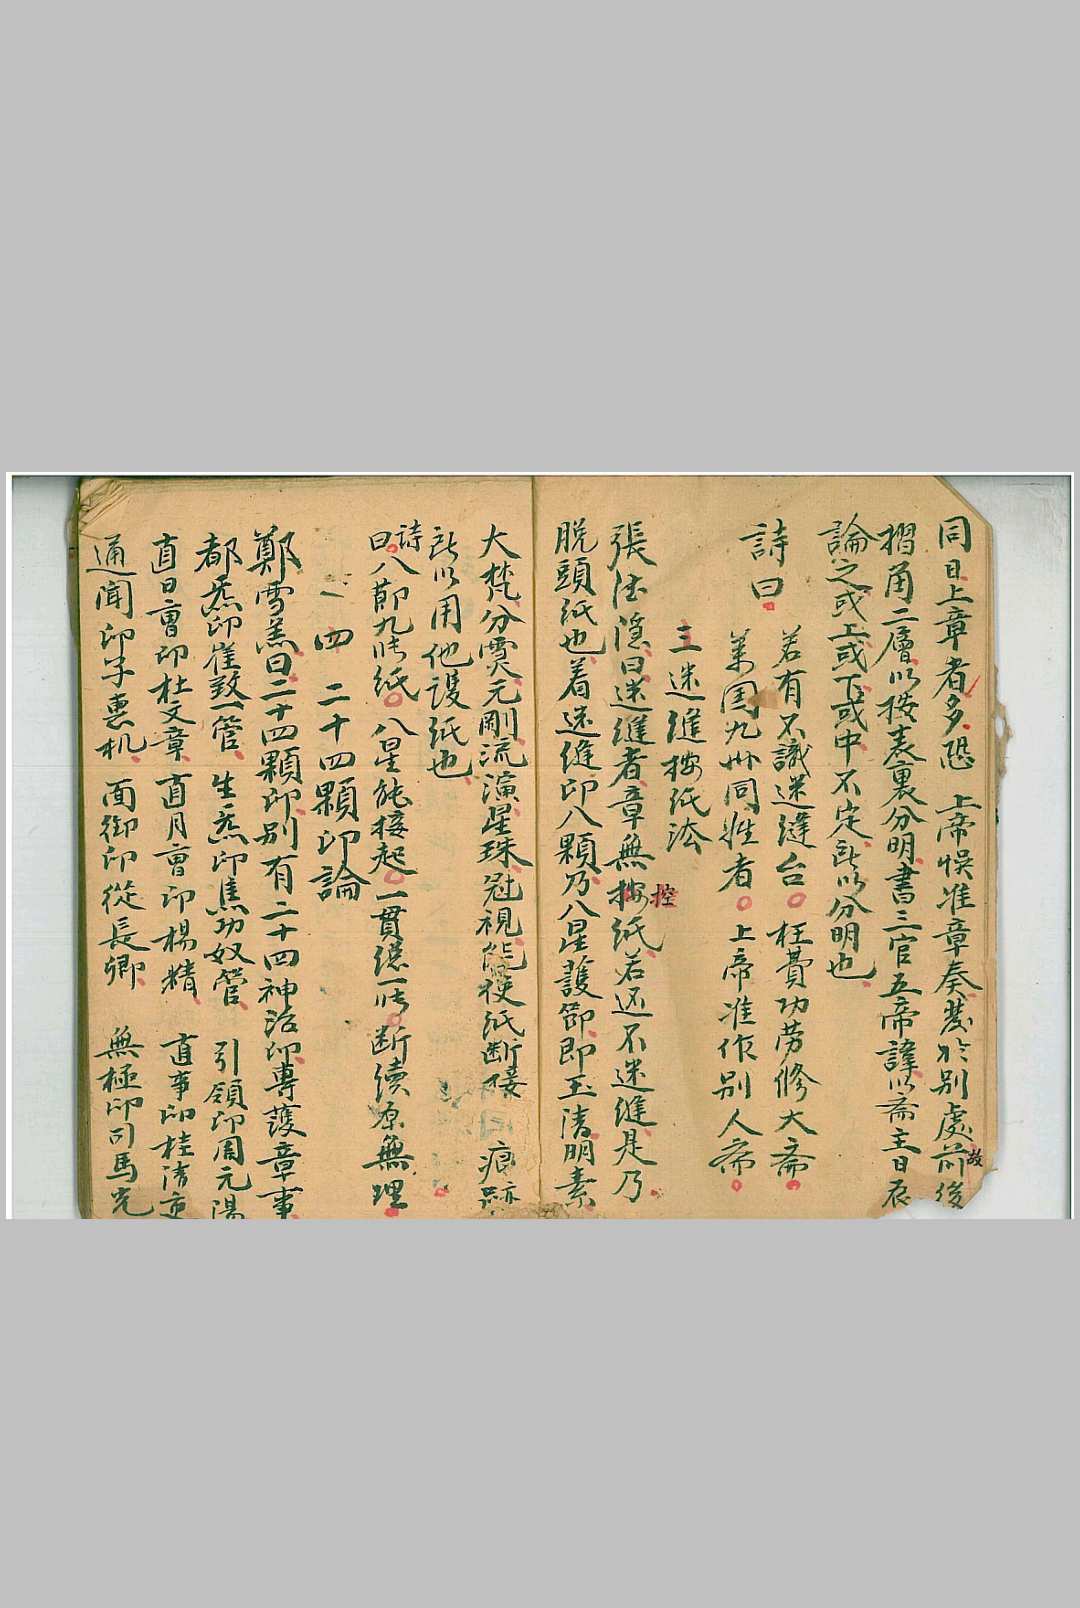 同日上章者多恐　上帝悞准章奏發於別處故前後
摺角二層以按表裏分明書三官五帝諱以斋主日辰
論之或上或下或中不定所以分明也
詩曰　若有不識迷縫台　枉費功劳修大斋
萬国九州同姓者　上帝准作別人斋
三迷縫按紙法
張法隱曰迷縫者章無按紙若还不迷縫是乃
脫頭紙也着迷縫印八顆乃八星護節即玉清明素
大梵分霄元剛流演星珠冠視能梗紙断接　痕跡
所以用他護紙也
詩曰八節九张紙　八星能接起　一貫繞一张　断續原無理
四　二十四顆印論
鄭雪羔曰二十四顆印別有二十四神法印專護章事
都炁印崔致一管　生炁印焦功奴管　引領印周元陽
直日曹印杜文章　直月曹印楊精　直事印桂清重
通聞印子惠机　面御印從長卿　無極印司馬光